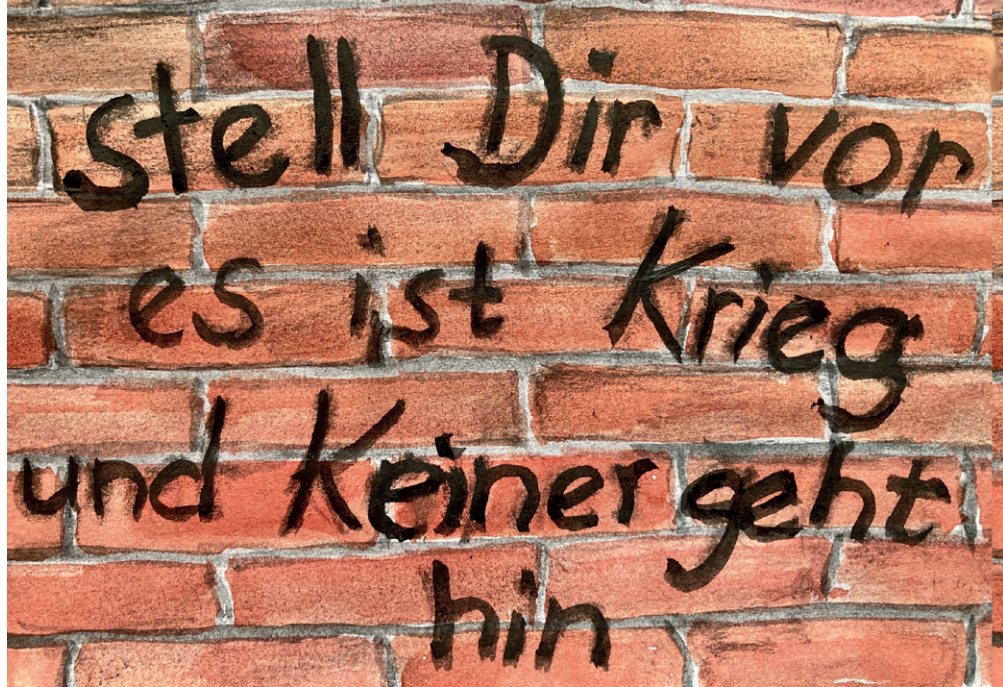 stell Dir vor
es ist Krieg
und Keiner geht
hin